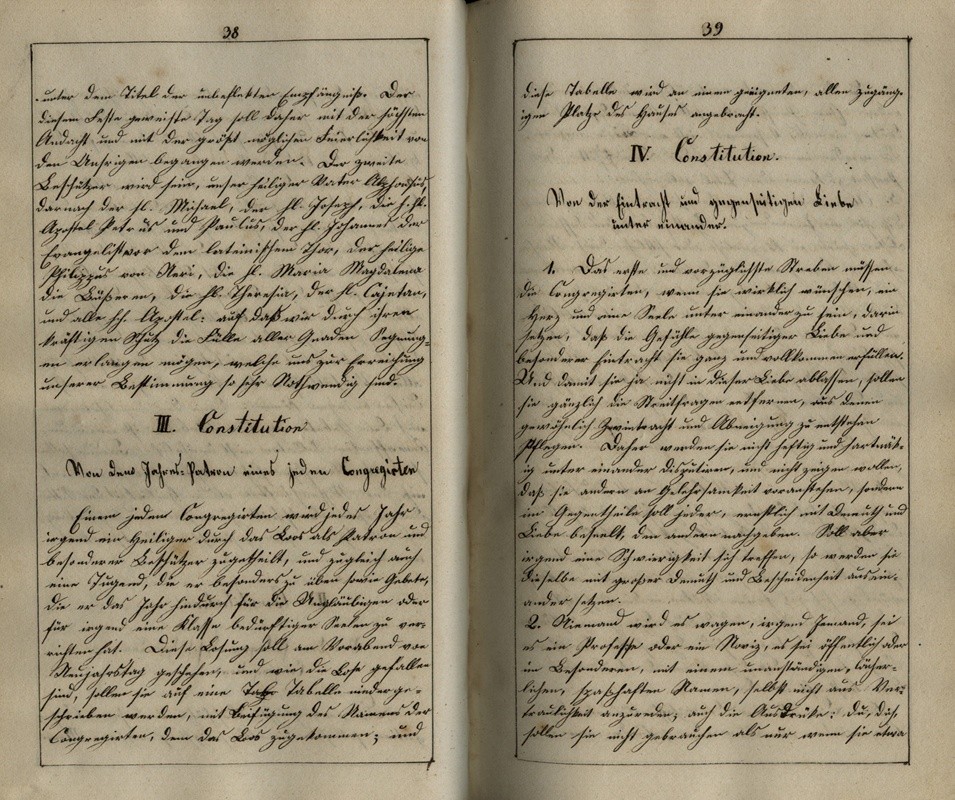 38
unter dem Titel der unbeflekten Empfängniß. Der
diesem Feste geweihte Tag soll daher mit der höchsten
Andacht und mit der größt möglichen Feierlichkeit von
den Unsrigen begangen werden. Der zweite
Beschützer wird sein, unser heiliger Vater Alphonsus,
darnach der hl. Michael, der hl. Joseph, die h. hl.
Apostel Petrus und Paulus, der hl. Johannes der
Evangelist vor dem lateinischen Thor, der heilige
Philippus von Neri, die hl. Maria Magdalena
die Büßerin, die hl. Theresia, der hl. Cajetan,
und alle hh. Apostel: auf daß wir durch ihren
kräftigen Schutz die Fülle aller Gnaden Segnung-
en erlangen mögen, welche uns zur Erreichung
unserer Bestimmung so sehr Nothwendig sind.
III. Constitution
Von dem Jahres-Patron eines jeden Congregirten
Einem jeden Congregirten wird jedes Jahr
irgend ein Heiliger durch das Loos als Patron und
besonderer Beschützer zugetheilt, und zugleich auch
eine Tugend, die er besonders zu üben sowie Gebete,
die er das Jahr hindurch für die Ungläubigen oder
für irgend eine Klasse bedürftiger Seelen zu ver-
richten hat. Diese Losung soll am Vorabend von
Neujahrstag geschehen, und wie die Lose gefallen
sind, sollen sie auf eine Tabelle niederge-
schrieben werden, mit Beifügung des Namens der
Congregirten, dem das Loos zugekommen; und
39
diese Tabelle wird an einem geeigneten, allen zugäng-
igen Platze des Hauses angebracht.
IV. Constitution.
Von der Eintracht und gegenseitigen Liebe
unter einander.
1. Das erste und vorzüglichste Streben müssen
die Congregirten, wenn sie wirklich wünschen, ein
Herz und eine Seele unter einander zu sein, darin
setzen, daß die Gefühle gegenseitiger Liebe und
besonderer Eintracht sie ganz und vollkommen erfüllen.
Und damit sie ja nicht in dieser Liebe ablassen, sollen
sie gänzlich die Streitfragen entfernen, aus denen
gewöhnlich Zwietracht und Abneigung zu entstehen
pflegen. Daher werden sie nicht heftig und hartnäk-
ig unter einander disputiren, und nicht zeigen wollen,
daß sie andern an Gelehrsamkeit voranstehen, sondern
im Gegentheile soll jeder, ernstlich mit Demuth und
Liebe beseelt, den andern nachgeben. Soll aber
irgend eine Schwierigkeit sich treffen, so werden sie
dieselbe mit großer Demuth und Bescheidenheit ausein-
ander setzen.
2. Niemand wird es wagen, irgend Jemand, sei
es ein Professe oder ein Noviz, es sei öffentlich oder
im Besonderen, mit einem unanständigen, lächer-
lichen, spaßhaften Namen, selbst nicht aus Ver-
traulichkeit anzureden; auch die Ausdrüke: du, dich,
sollen sie nicht gebrauchen als nur wenn sie etwa